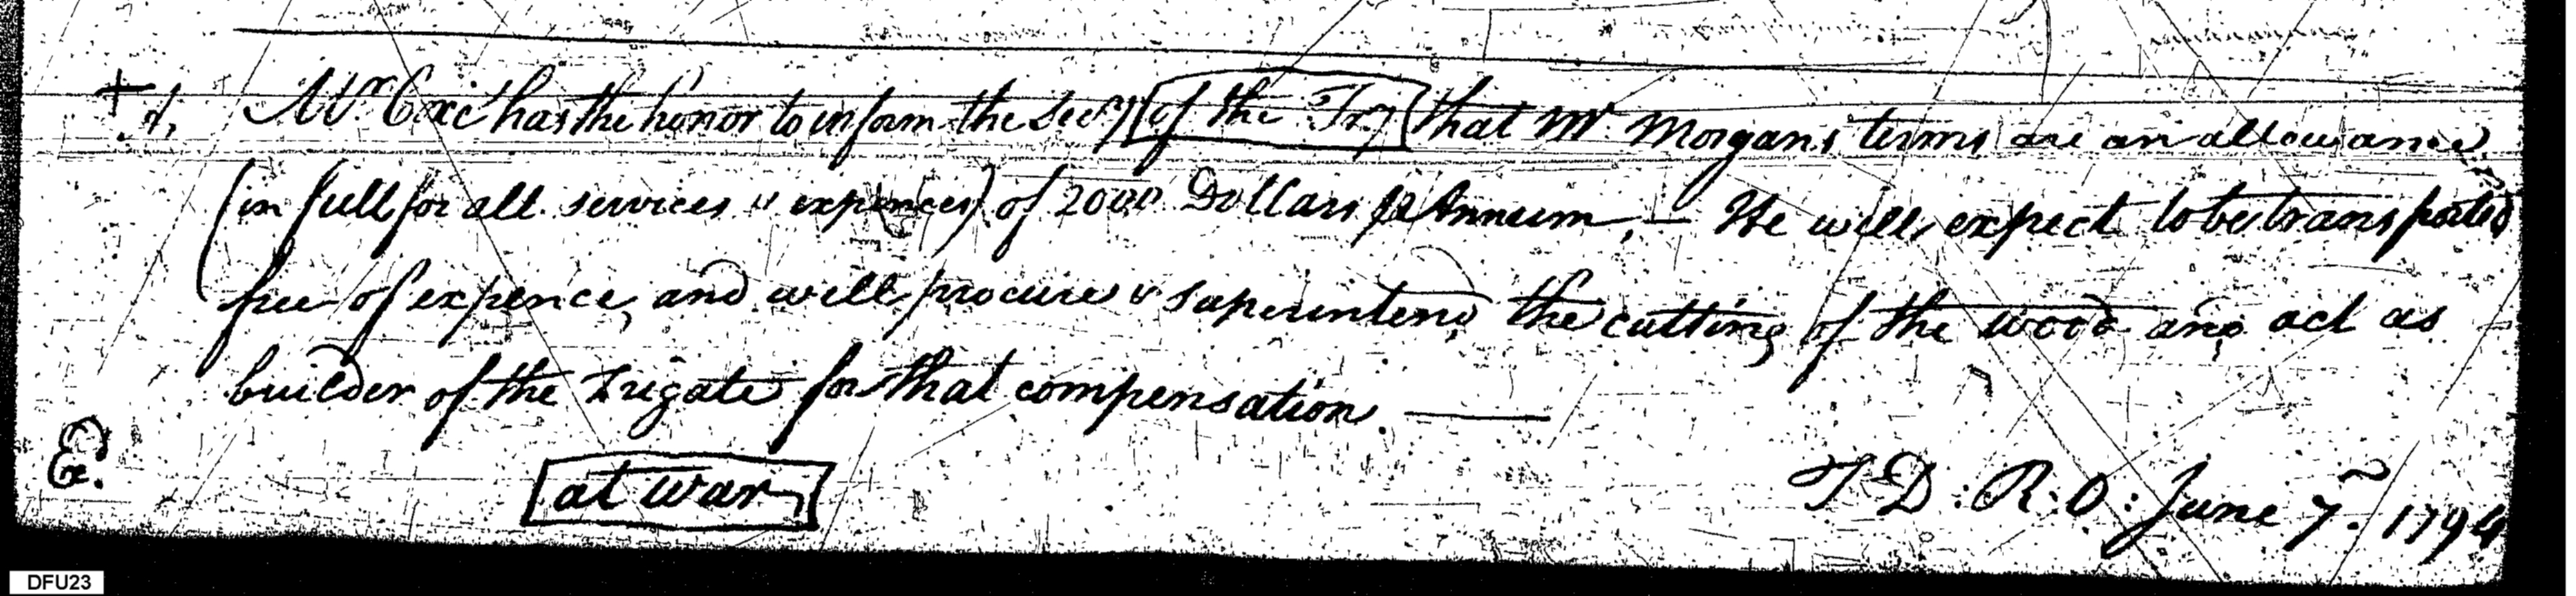 + A. Mr. Coxe has the honor to inform the Secy [of the Try] that Mr Morgans terms are an allowance
(in full for all services & expences) of 2000 Dollars ⅌ Annum,— He will expect to be transported
free of expence, and will procure & superintend the cutting of the wood and act as
builder of the Frigate for that compensation. —
E.
[at war]
T D: R: O: June 7. 1794
DFU23